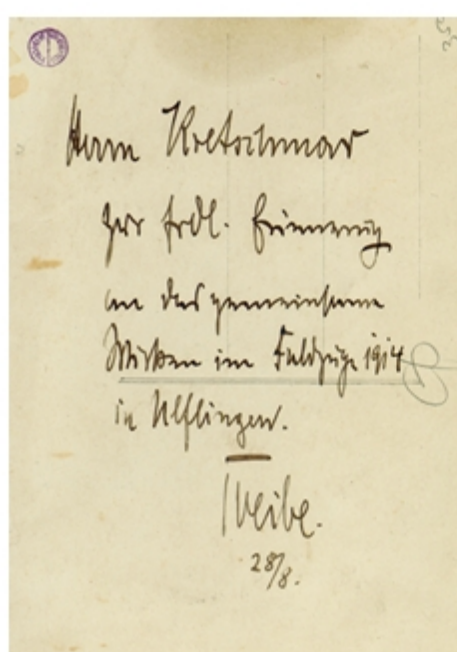 Herrn Kretschmar
zur frdl. Erinnerung
an das gemeinsame
Wirken im Feldzuge 1914
in Ulflingen.
28/8.